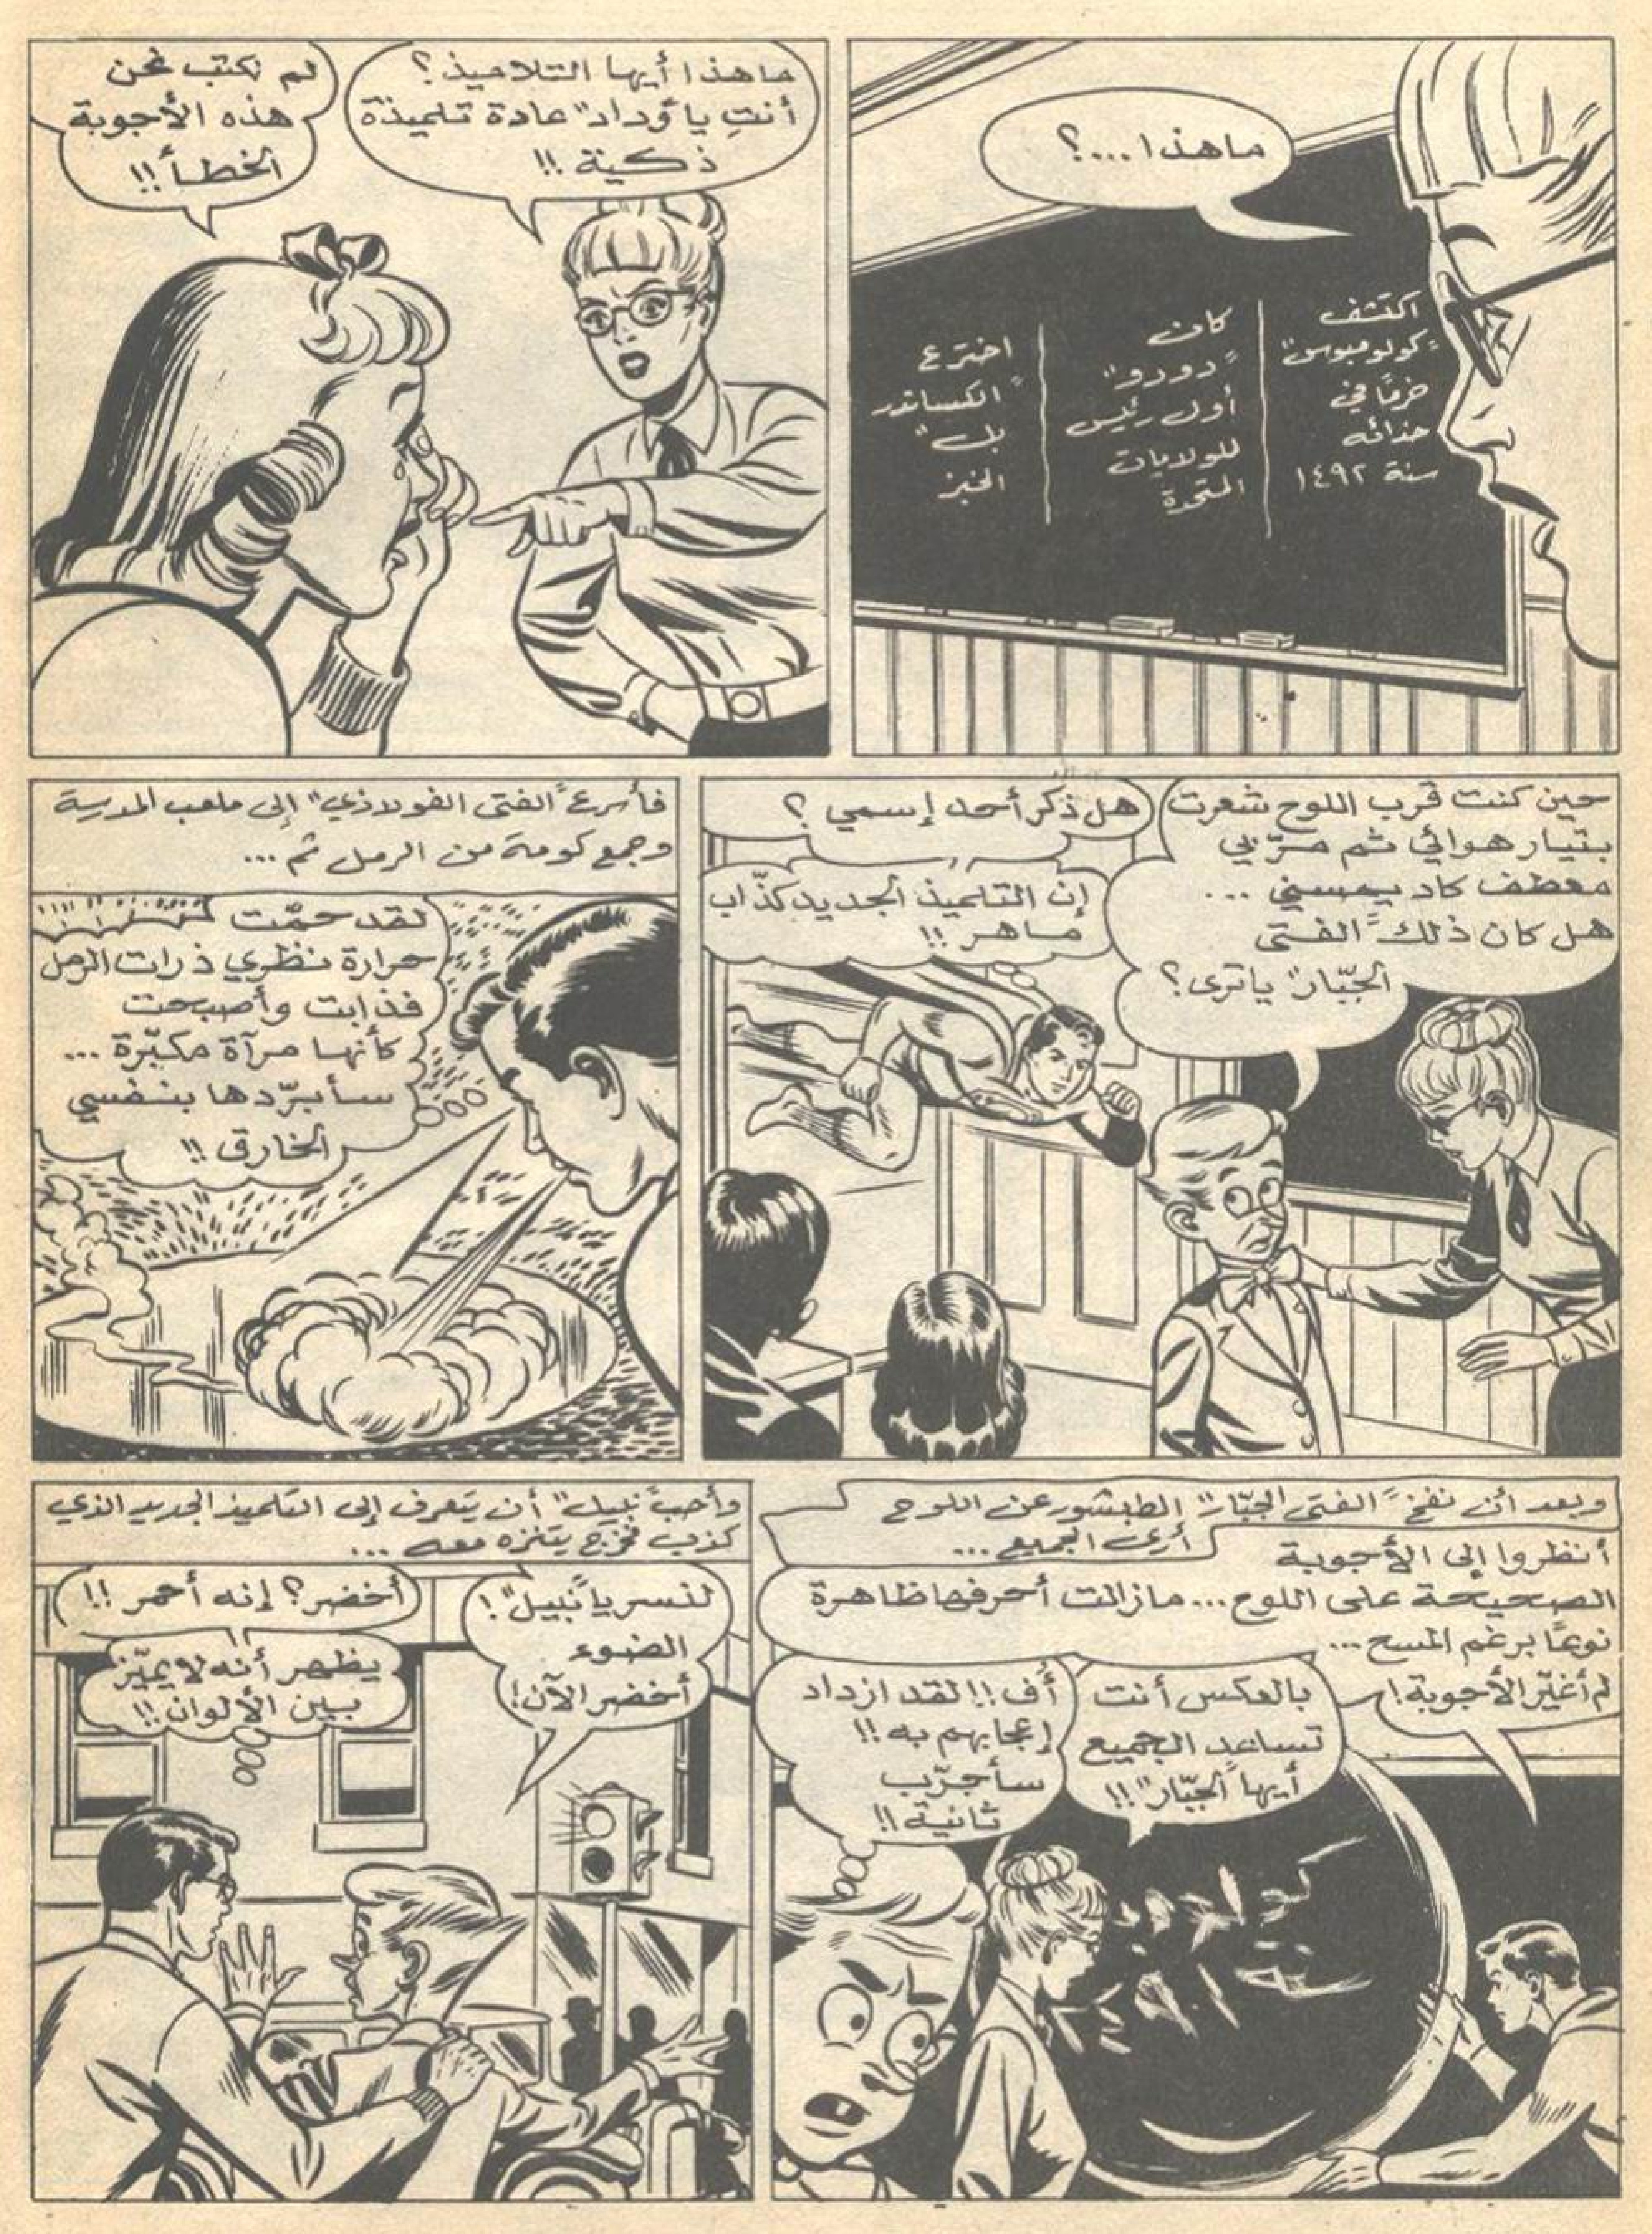 ما هذا ...؟
اكتشف
"كولومبوس"
خرقًا في
حذائه
سنة ١٤٩٢
كان
"دودو"
أول رئيس
للولايات
المتحدة
اخترع
"الكساندر
بل"
الخبز
ما هذا أيها التلاميذ؟
أنتِ يا "وداد" عادة تلميذة
ذكية !!
لم نكتب نحن
هذه الأجوبة
الخطأ !!
حين كنت قرب اللوح شعرت
بتيار هوائي ثم مرّ بي
معطف كاد يمسني ...
هل كان ذلك "الفتى
الجبّار" يا ترى؟
هل ذكر أحد إسمي ؟
إن التلميذ الجديد كذّاب
ماهر !!
فأسرع "الفتى الفولاذي" إلى ملعب المدرسة
وجمع كومة من الرمل ثم ...
لقد حمّت
حرارة نظري ذرات الرمل
فذابت وأصبحت
كأنها مرآة مكبّرة ...
سأبرّدها بنفسي
الخارق !!
وبعد أن نفخ "الفتى الجبّار" الطبشور عن اللوح
أرى الجميع ...
أنظروا إلى الأجوبة
الصحيحة على اللوح ... مازالت أحرفها ظاهرة
نوعًا برغم المسح ...
لم أغيّر الأجوبة !
بالعكس أنت
تساعد الجميع
أيها "الجبّار" !!
أف !! لقد ازداد
إعجابهم به !!
سأجرّب
ثانية !!
وأحب "نبيل" أن يتعرف إلى التلميذ الجديد الذي
كذب فخرج يتنزه معه ...
لنسر يا "نبيل" !
الضوء
أخضر الآن !
أخضر؟ إنه أحمر !!
يظهر أنه لا يميّز
بين الألوان !!